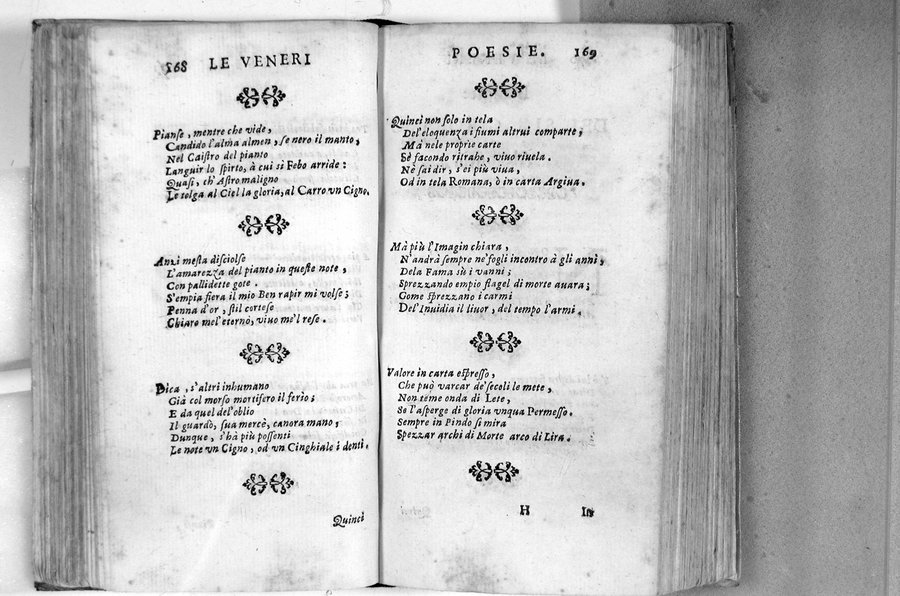 168 LE VENERI
Pianse, mentre che vide,
Candido l'alma almen, se nero il manto,
Nel Caistro del pianto
Languir lo spirto, à cui sì Febo arride:
Quasi, ch'Astro maligno
Le tolga al Ciel la gloria, al Carro vn Cigno.
Anzi mesta disciolse
L'amarezza del pianto in queste note,
Con pallidette gote.
S'empia fiera il mio Ben rapir mi volse;
Penna d'or, stil cortese
Chiaro mel'eternò, viuo me'l rese.
Dica, s'altri inhumano
Già col morso mortifero il ferìo;
E da quel del'oblio
Il guardò, sua mercè, canora mano;
Dunque, s'hà più possenti
Le note vn Cigno, od vn Cinghiale i denti.
Quinci
POESIE. 169
Quinci non solo in tela
Del'eloquenza i fiumi altrui comparte,
Mà nele proprie carte
Sè facondo ritrahe, viuo riuela.
Nè sai dir, s'ei più viua,
Od in tela Romana, ò in carta Argiua.
Mà più l'Imagin chiara,
N'andrà sempre ne'fogli incontro à gli anni,
Dela Fama sù i vanni;
Sprezzando empio flagel di morte auara;
Come sprezzano i carmi
Del'Inuidia il liuor, del tempo l'armi.
Valore in carta espresso,
Che può varcar de'secoli le mete,
Non teme onda di Lete,
Se l'asperge di gloria vnqua Permesso.
Sempre in Pindo si mira
Spezzar archi di Morte arco di Lira.
H In